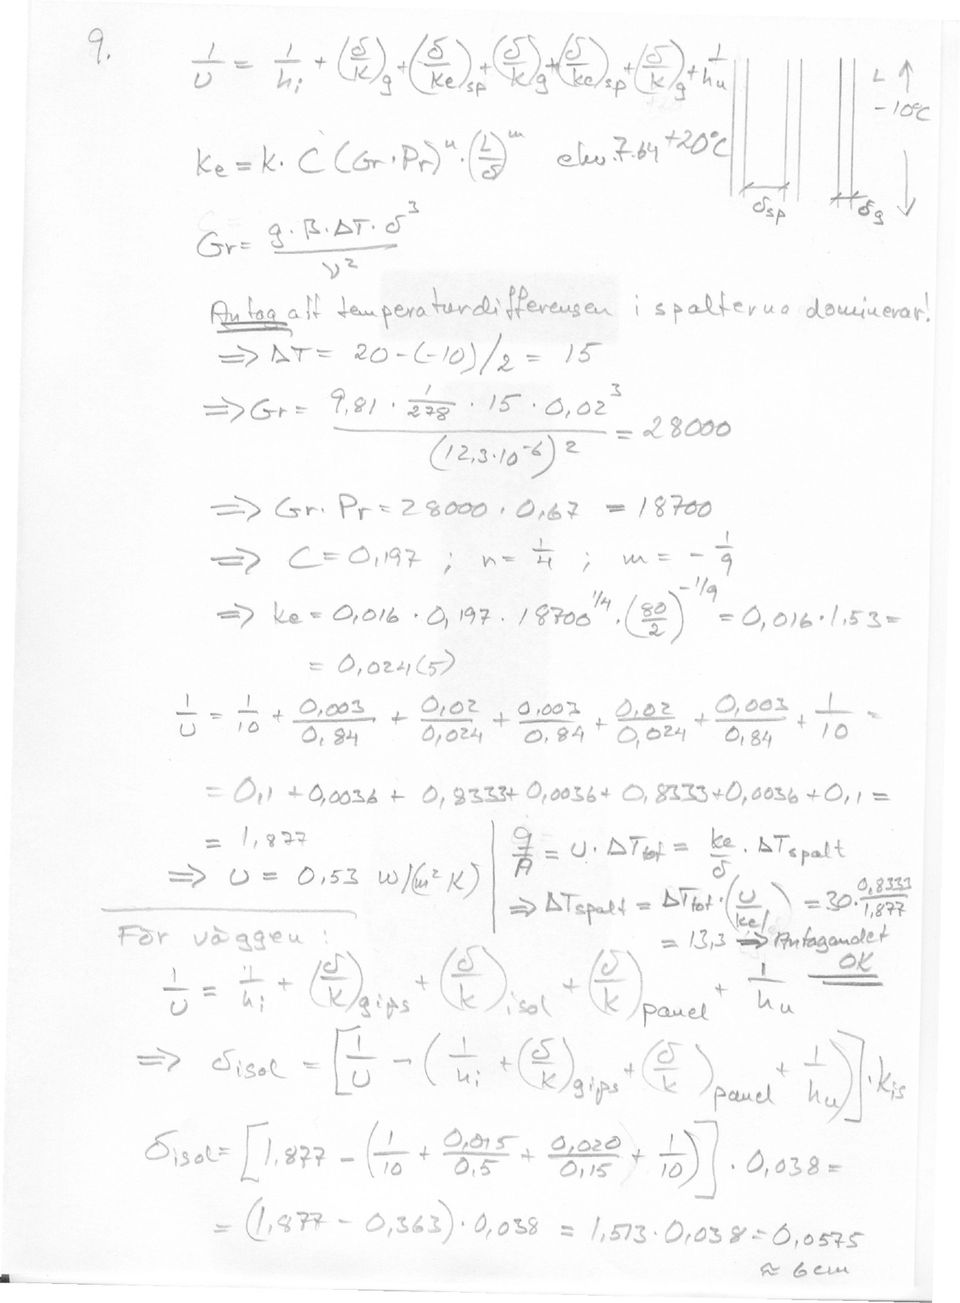 9.
1/U = 1/hi + (δ/k)g + (δ/ke)sp + (δ/k)g + (δ/ke)sp + (δ/k)g + 1/hu
L ↑
-10°C
ke = k · C (Gr·Pr)^n · (L/δ)^m ekv. 7.64 +20°C
δsp δg
Gr = g·β·ΔT·δ^3 / ν^2
Antag att temperaturdifferensen i spalterna dominerar!
⇒ ΔT = 20-(-10)/2 = 15
⇒ Gr = 9,81 · 1/278 · 15 · 0,02^3 / (12,3·10^-6)^2 = 28000
⇒ Gr·Pr = 28000 · 0,67 = 18700
⇒ C = 0,197 ; n = 1/4 ; m = -1/9
⇒ ke = 0,016 · 0,197 · 18700^1/4 · (80/2)^-1/9 = 0,016·1,53 =
= 0,024(5)
1/U = 1/10 + 0,003/0,84 + 0,02/0,024 + 0,003/0,84 + 0,02/0,024 + 0,003/0,84 + 1/10 =
= 0,1 + 0,0036 + 0,8333 + 0,0036 + 0,8333 + 0,0036 + 0,1 =
= 1,877
⇒ U = 0,53 W/(m²K)
q/A = U · ΔTtot = ke/δ · ΔTspalt
⇒ ΔTspalt = ΔTtot · (U/ke/δ) = 30 · 0,8333/1,877
= 13,3 ⇒ Antagandet
OK
För väggen :
1/U = 1/hi + (δ/k)gips + (δ/k)isol + (δ/k)panel + 1/hu
⇒ δisol = [1/U - (1/hi + (δ/k)gips + (δ/k)panel + 1/hu)] · kis
δisol = [1,877 - (1/10 + 0,015/0,5 + 0,020/0,15 + 1/10)] · 0,038 =
= (1,877 - 0,363) · 0,038 = 1,513 · 0,038 = 0,0575
≈ 6 cm